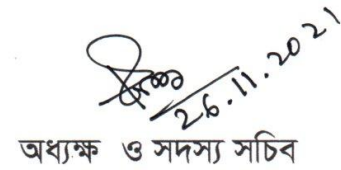 26.11.2021
অধ্যক্ষ ও সদস্য সচিব